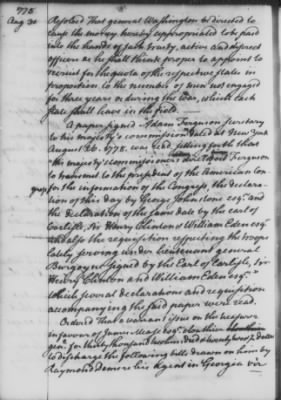 1778.
Aug. 31
Resolved That general Washington be directed to
cause the money hereby appropriated to be paid
into the hands of such trusty, active and discreet
officers as he shall think proper to appoint to
recruit for the quota of the respective states in
proportion to the number of men now engaged
for three years or during the war, which each
state shall have in the field.
A paper signed Adam Ferguson secretary
to his majesty's commission dated at New York
August 26. 1778. was read setting forth that
his majesty's commissioners directed Ferguson
to transmit to the president of the American Con
gress for the information of the Congress, the declara-
tion of this day by George Johnstone esqr. and
the declaration of the same date by the earl of
Carlisle, Sir Henry Clinton & William Eden esqr.
and also the requisition respecting the troops
lately serving under lieutenant general
Burgoyne signed by the Earl of Carlisle, Sir
Henry Clinton and William Eden esqr.
which several declarations and requisition
accompanying the said paper were read.
Ordered That a warrant issue on the treasurer
in favour of James Mease esqr. cloathier
genl. for thirty thousand hundred & twenty dollars
to discharge the following bills drawn on him by
Raymond Demere his Agent in Georgia viz